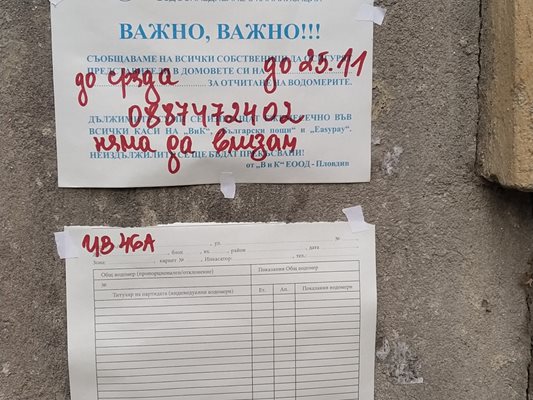 ВАЖНО, ВАЖНО!!!
СЪОБЩАВАМЕ НА ВСИЧКИ СОБСТВЕНИЦИ ДА ОСИГУРЯТ
ПРЕДСТАВИТЕЛИ В ДОМОВЕТЕ СИ НА
до сряда
до 25.11
ЗА ОТЧИТАНЕ НА ВОДОМЕРИТЕ.
0887472402
ДЪЛЖИМИТЕ СЕ ЕЖЕМЕСЕЧНО ВЪВ
ВСИЧКИ КАСИ НА „ВиК“, „Български пощи“ и „Easypay“.
няма да влизам
НЕИЗДЪЛЖИЛИТЕ СЕ ЩЕ БЪДАТ ПРЕКЪСВАНИ!
от „В и К“ ЕООД - Пловдив
ЦВ 46А
, ул. №
Зона , блок , вх. , район , дата
, карнет № , Инкасатор: , тел.
Общ водомер (пропорционален/отклонение) Показания Общ водомер
№
Титуляр на партидата (индивидуални водомери) Ет. Ап. Показания водомери